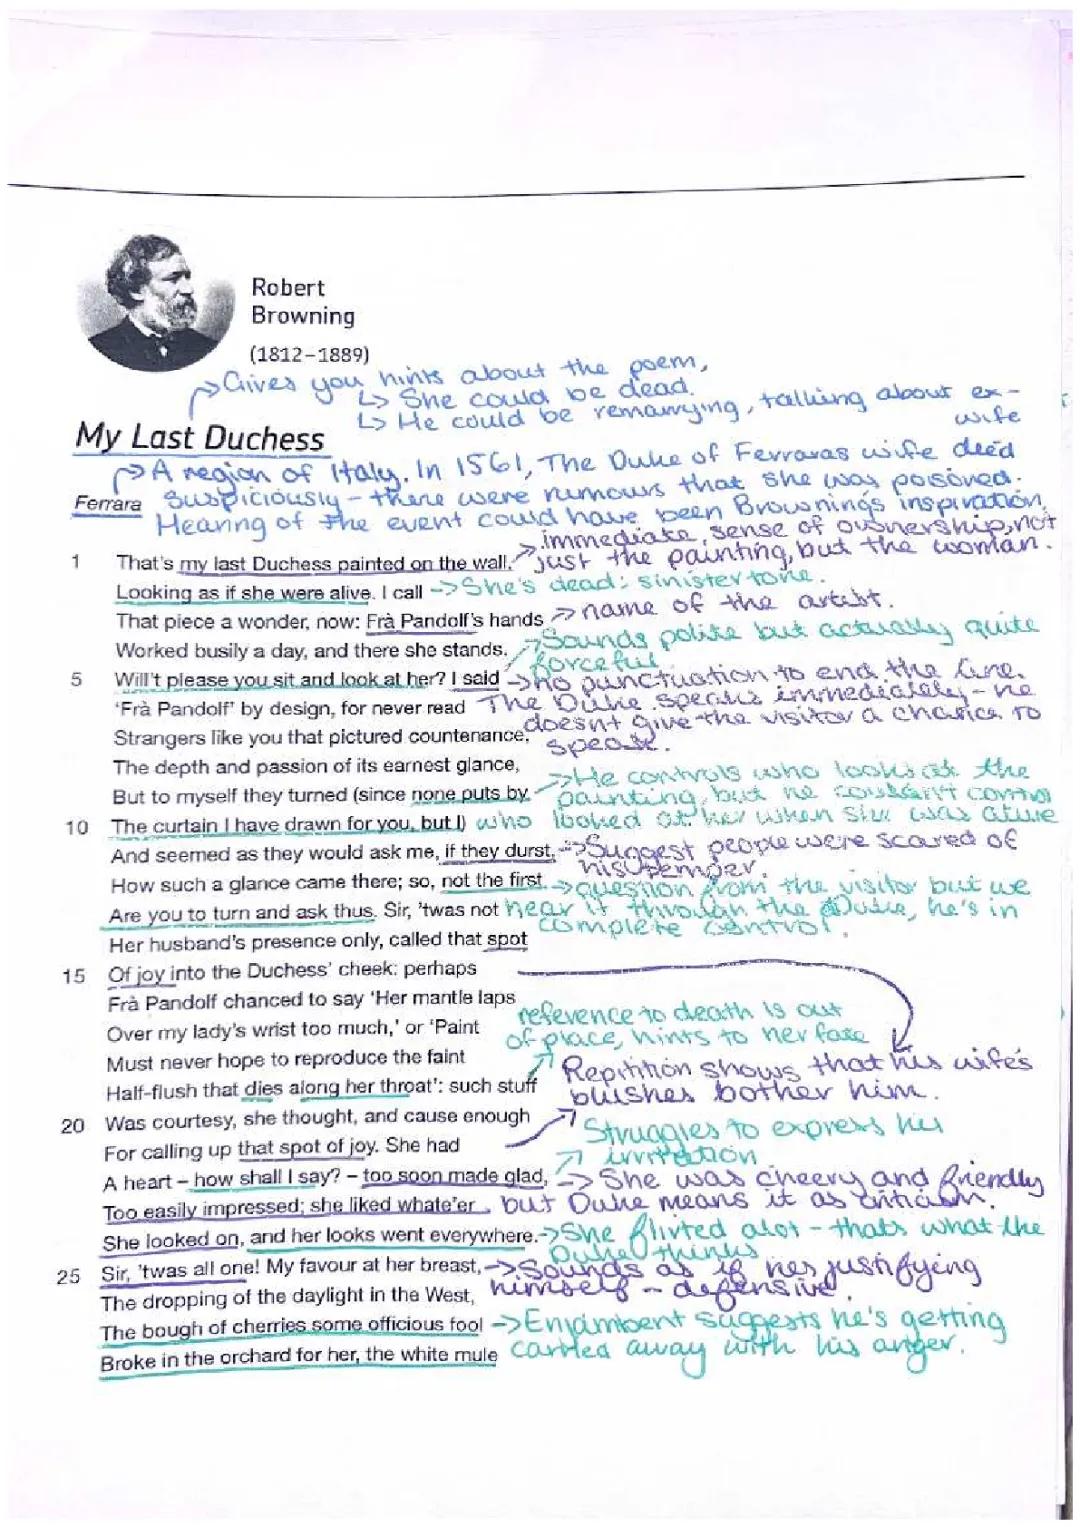 Robert
Browning
(1812–1889)
Gives you hints about the poem,
↳ She could be dead.
↳ He could be remarrying, talking about ex-
wife
My Last Duchess
A region of Italy. In 1561, The Duke of Ferraras wife died
Ferrara suspiciously - there were rumours that she was poisoned.
Hearing of the event could have been Browning's inspiration.
immediate, sense of ownership, not
1 That's my last Duchess painted on the wall, just the painting, but the woman.
Looking as if she were alive. I call -> She's dead: sinister tone.
That piece a wonder, now: Frà Pandolf's hands -> name of the artist.
Worked busily a day, and there she stands. Sounds polite but actually quite
forceful
5 Will't please you sit and look at her? I said -> no punctuation to end the line.
'Frà Pandolf' by design, for never read The Duke speaks immediately - he
doesnt give the visitor a chance to
Strangers like you that pictured countenance, speak.
The depth and passion of its earnest glance, -> He controls who looks at the
But to myself they turned (since none puts by painting, but he couldn't control
10 The curtain I have drawn for you, but I) who looked at her when she was alive
And seemed as they would ask me, if they durst, -> Suggest people were scared of
his temper.
How such a glance came there; so, not the first -> question from the visitor but we
Are you to turn and ask thus. Sir, 'twas not hear it through the Duke, he's in
complete control.
Her husband's presence only, called that spot
15 Of joy into the Duchess' cheek: perhaps
Frà Pandolf chanced to say 'Her mantle laps
reference to death is out
Over my lady's wrist too much,' or 'Paint of place, hints to her fate
Must never hope to reproduce the faint Repitition shows that his wife's
Half-flush that dies along her throat': such stuff blushes bother him.
20 Was courtesy, she thought, and cause enough Struggles to express his
For calling up that spot of joy. She had irritation
A heart – how shall I say? – too soon made glad, -> She was cheery and friendly
Too easily impressed; she liked whate'er but Duke means it as criticism.
She looked on, and her looks went everywhere. -> She flirted alot - thats what the
Duke thinks
25 Sir, 'twas all one! My favour at her breast, -> Sounds as if hes justifying
The dropping of the daylight in the West, himself - defensive.
The bough of cherries some officious fool -> Enjambent suggests he's getting
Broke in the orchard for her, the white mule carried away with his anger.